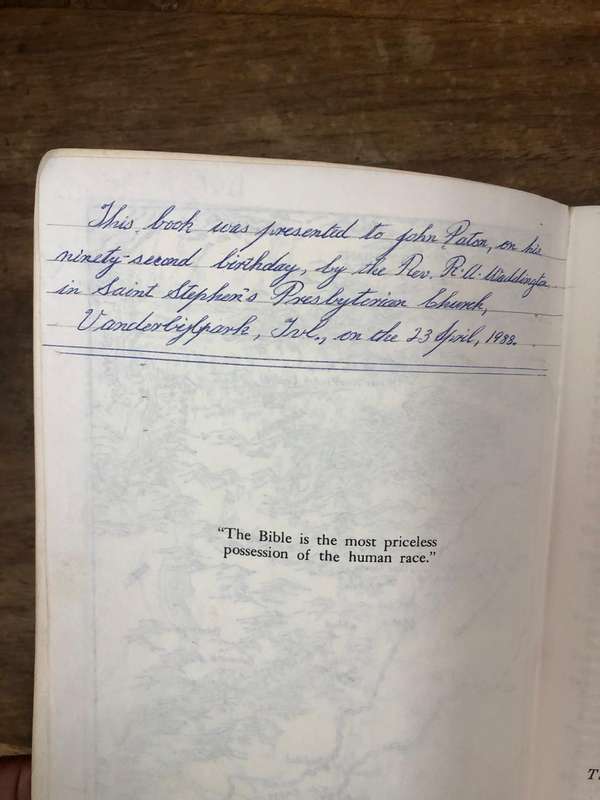 This book was presented to John Paton, on his
ninety-second birthday, by the Rev. R.A. Waddington,
in Saint Stephen's Presbyterian Church,
Vanderbijlpark, Tvl., on the 23 April, 1988.
"The Bible is the most priceless
possession of the human race."